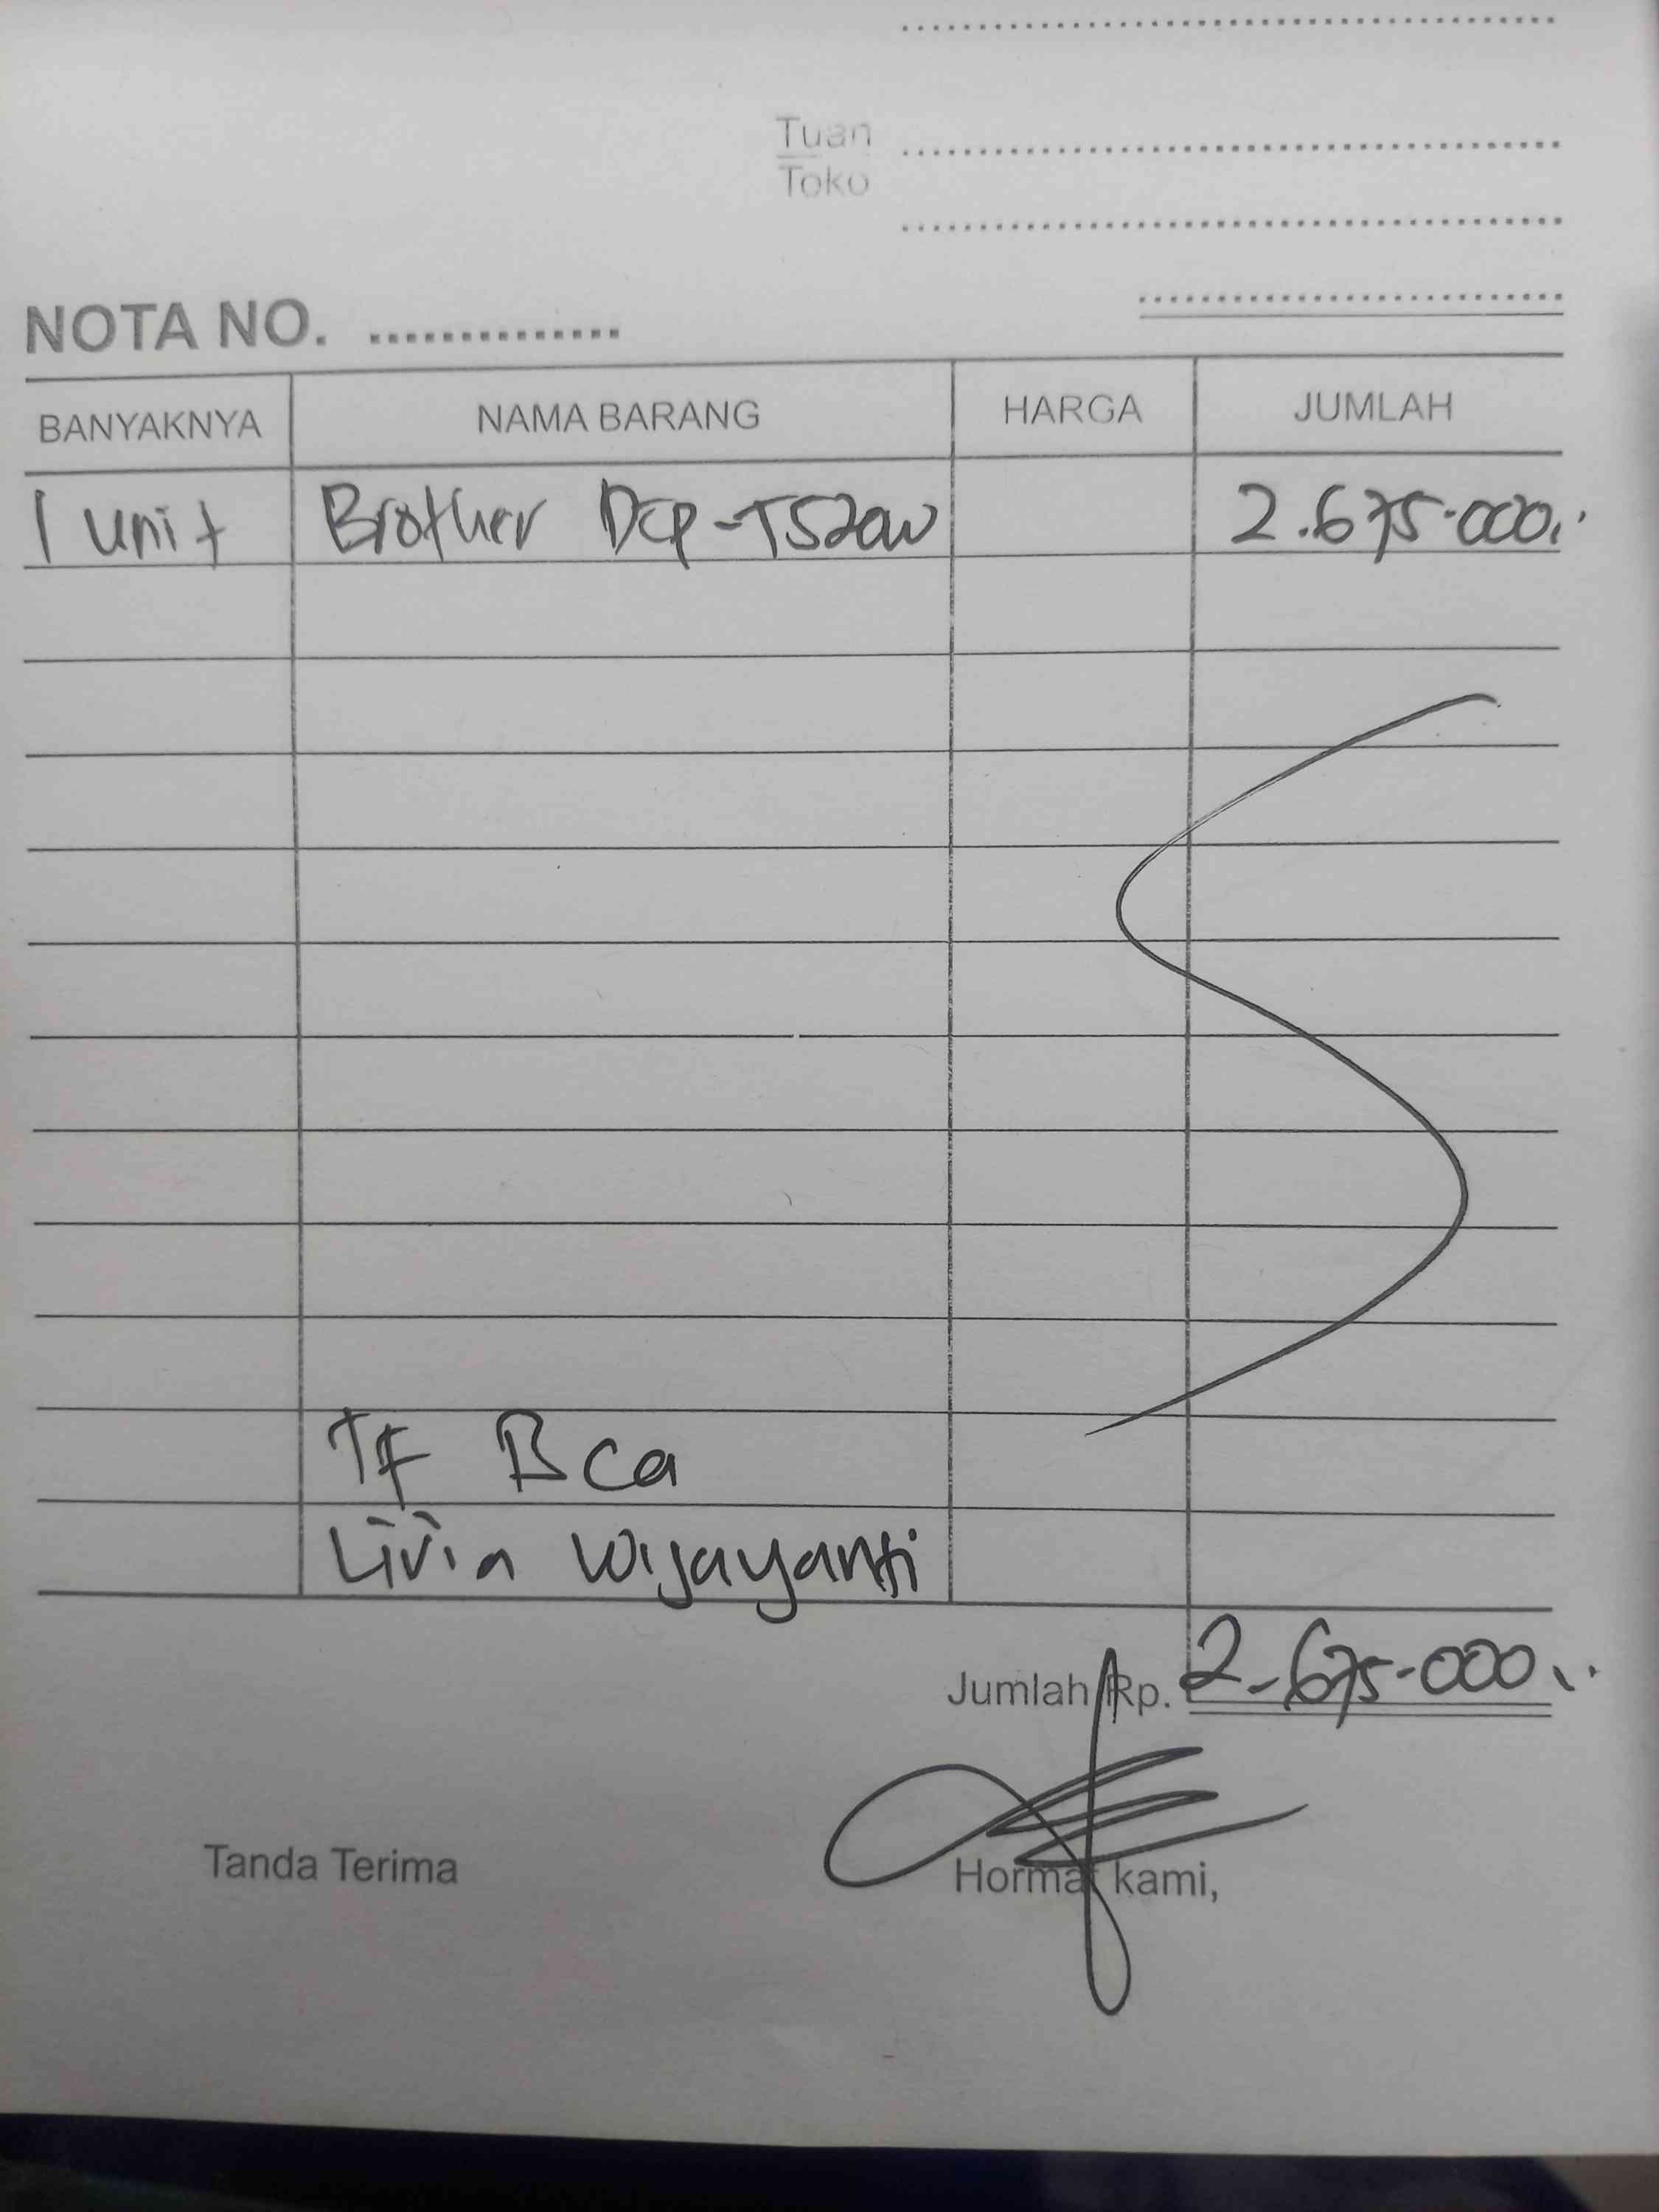 Tuan
Toko
NOTA NO. ..............
BANYAKNYA NAMA BARANG HARGA JUMLAH
1 unit Brother DCP-T520W 2.675.000,-
TF BCa
Livia Wijayanti
Jumlah Rp. 2.675.000,-
Tanda Terima Hormat kami,